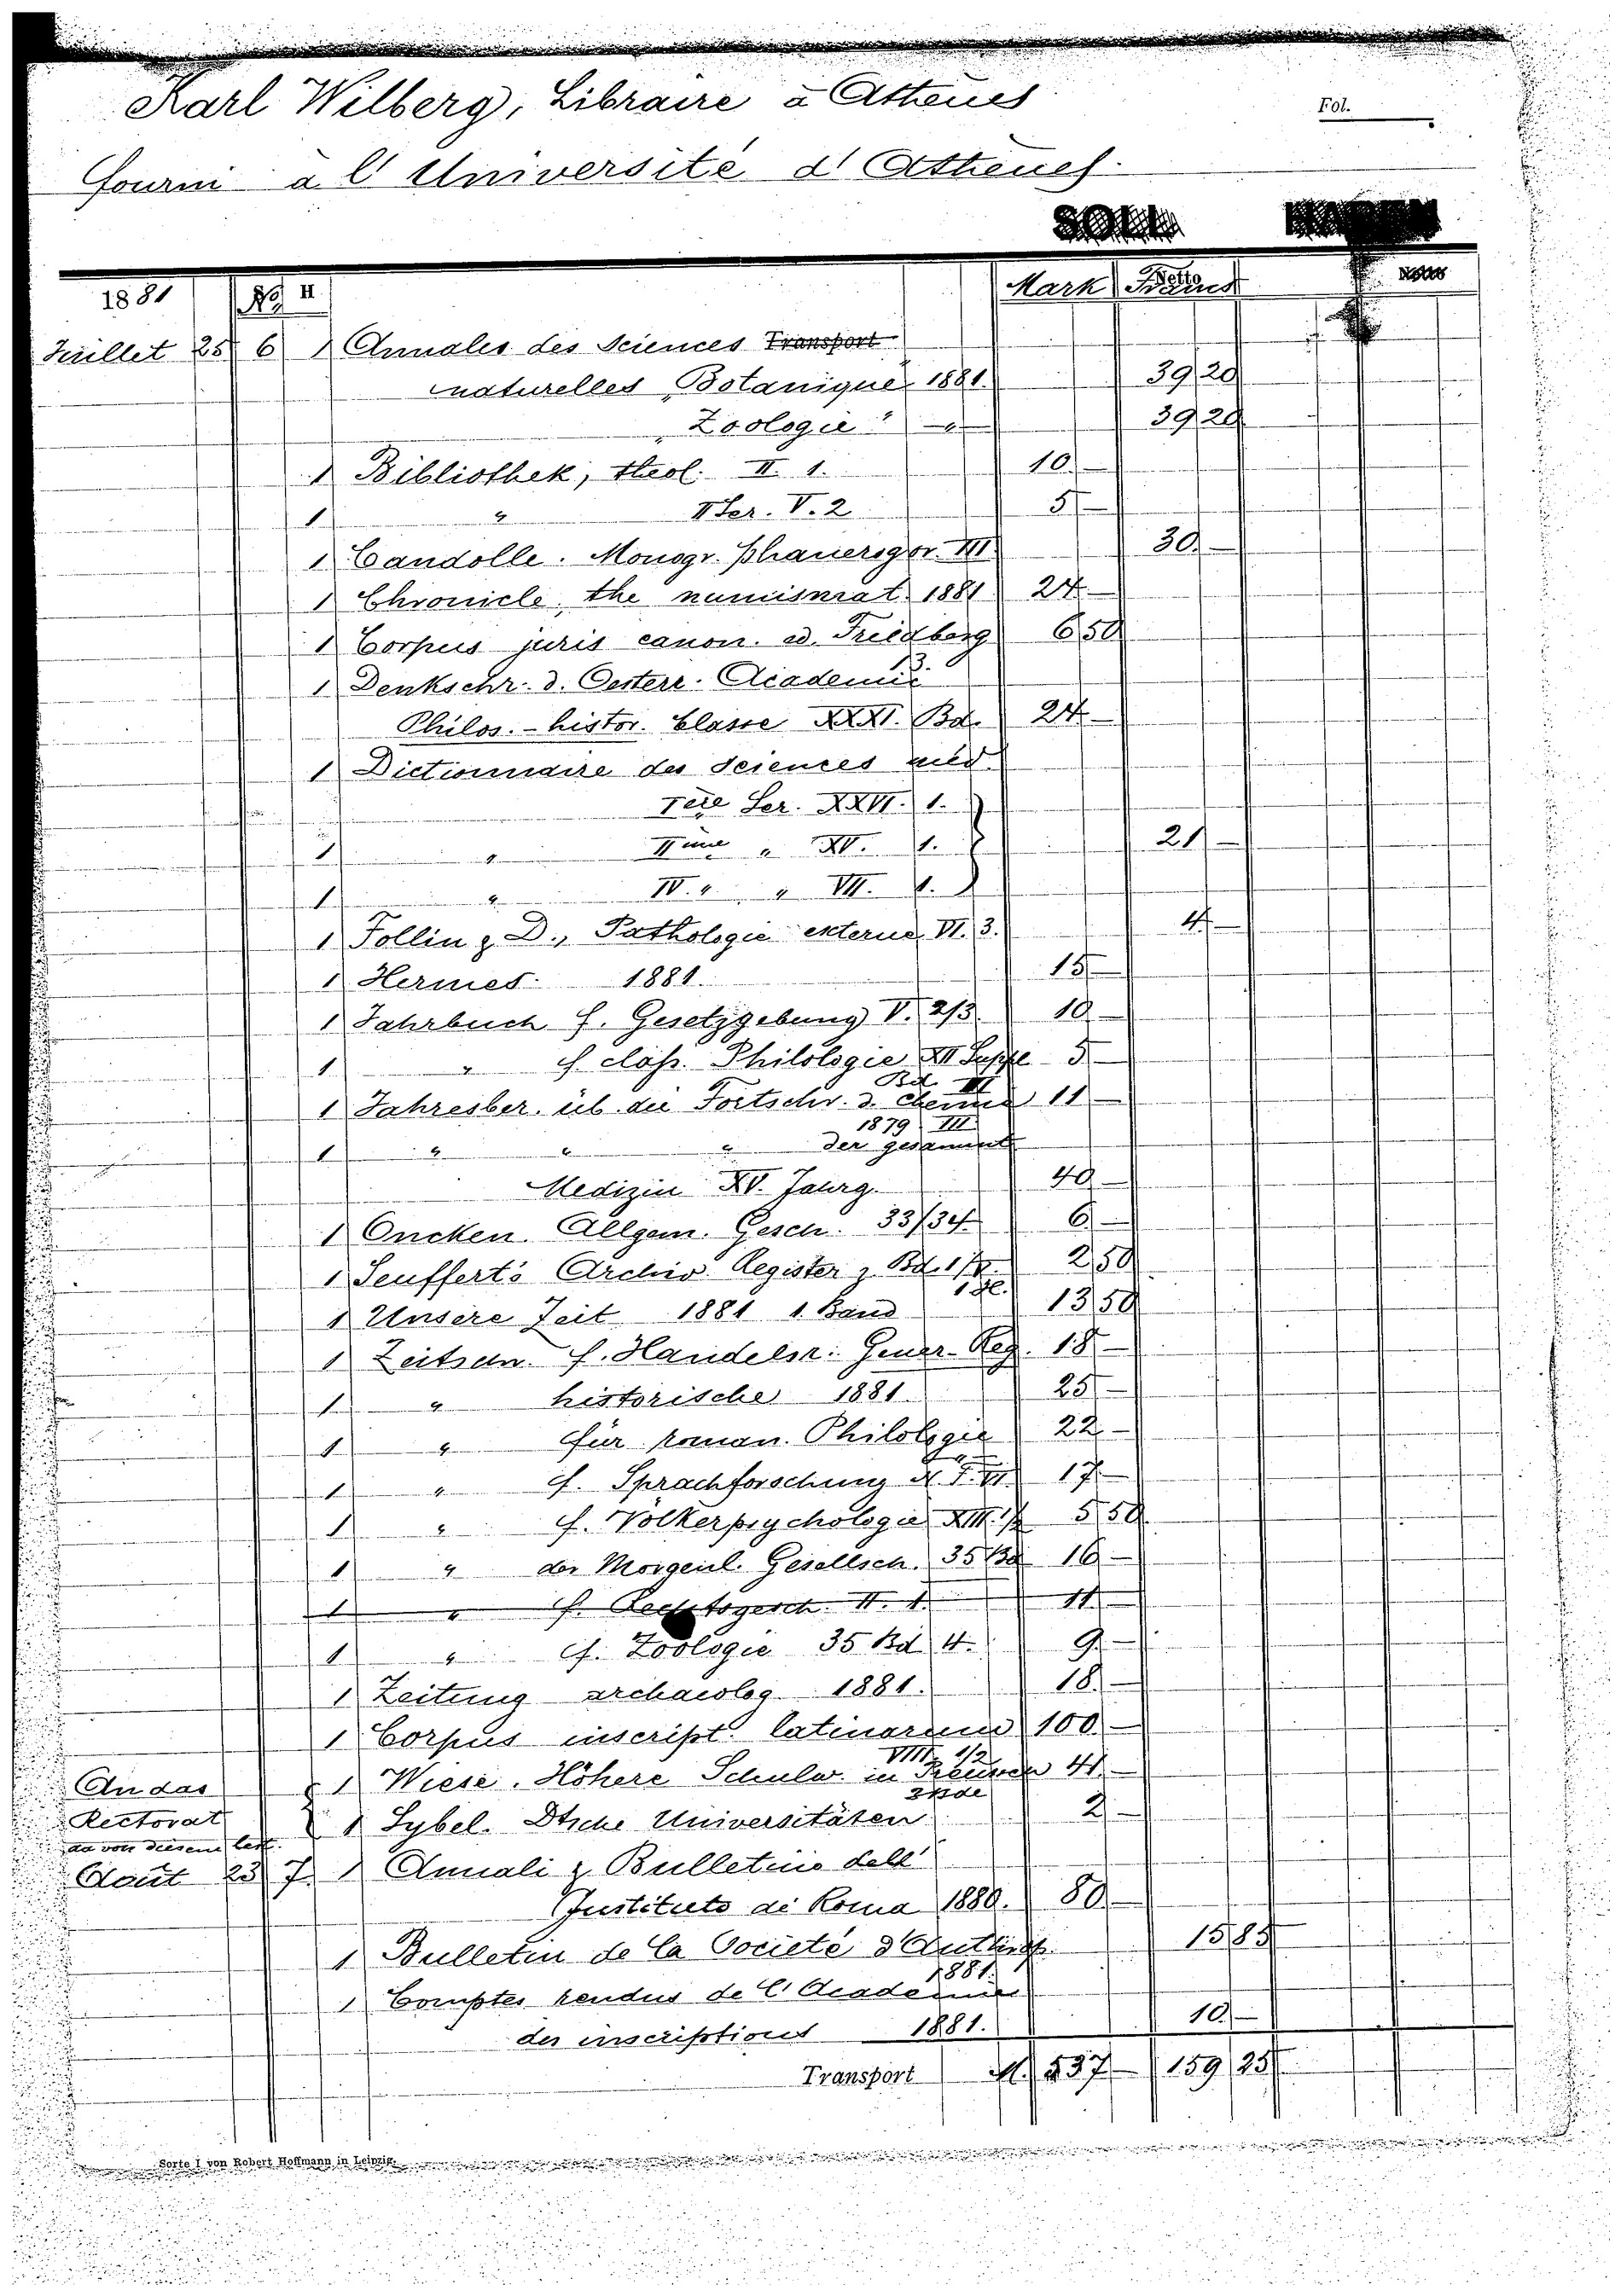 Karl Wilberg, Libraire à Athènes
Fol.
fourni à l'Université d'Athènes.
SOLL
1881 No II Mark Francs
Juillet 25 6 1 Annales des Sciences Transport
naturelles Botanique 1881. 39 20
" Zoologie " " 39 20
1 Bibliothek, theol. II. 1. 10 —
1 " II Ser. V. 2 5 —
1 Candolle. Monogr. phanerogor. III 30 —
1 Chronicle, the numismat. 1881 24 —
1 Corpus juris canon. ed. Friedberg 6 50
13.
1 Denkschr. d. Oesterr. Academie
Philos.-histor. Classe XXXI. Bd. 24 —
1 Dictionnaire des Sciences méd.
1ère Ser. XXVI. 1.
1 " IIème " XV. 1. 21 —
1 " IV. " " VII. 1.
1 Follin & D., Pathologie externe VI. 3. 4 —
1 Hermes 1881. 15 —
1 Jahrbuch f. Gesetzgebung V. 2/3. 10 —
1 " f. class. Philologie XII Suppl 5 —
Bd. III
1 Jahresber. üb. die Fortschr. d. Chemie 11 —
1879 III
1 " " " der gesammt
Medizin XV. Jahrg. 40 —
1 Oncken. Allgem. Gesch. 33/34. 6 —
1 Seuffert's Archiv. Register z. Bd. 2 50
1 Unsere Zeit 1881 1. Band 13 50
1 Zeitschr. f. Handelsr. Gener-Reg. 18 —
1 " historische 1881. 25 —
1 " für roman. Philologie 22 —
1 " f. Sprachforschung N. F. VI. 17 —
1 " f. Völkerpsychologie XIII. 5 50
1 " der Morgenl. Gesellsch. 35 Bd 16 —
1 " f. Rechtsgesch. II. 1. 11 —
1 " f. Zoologie 35 Bd 4. 9 —
1 Zeitung archaeolog. 1881. 18 —
1 Corpus inscript. latinarum 100 —
VIII 1/2
An das 1 Wiese. Höhere Schulw. in Preussen
Rectorat 1 Sybel. Dtsche Universitäten 2 —
da von diesem best.
Août 23 7. 1 Annali & Bulletino dell'
Instituto di Roma 1880. 80 —
1 Bulletin de la Société d'Anthrop. 15 85
1881.
1 Comptes rendus de l'Academie
des inscriptions 1881. 10 —
Transport M. 537 — 159 25
Sorte I von Robert Hoffmann in Leipzig.